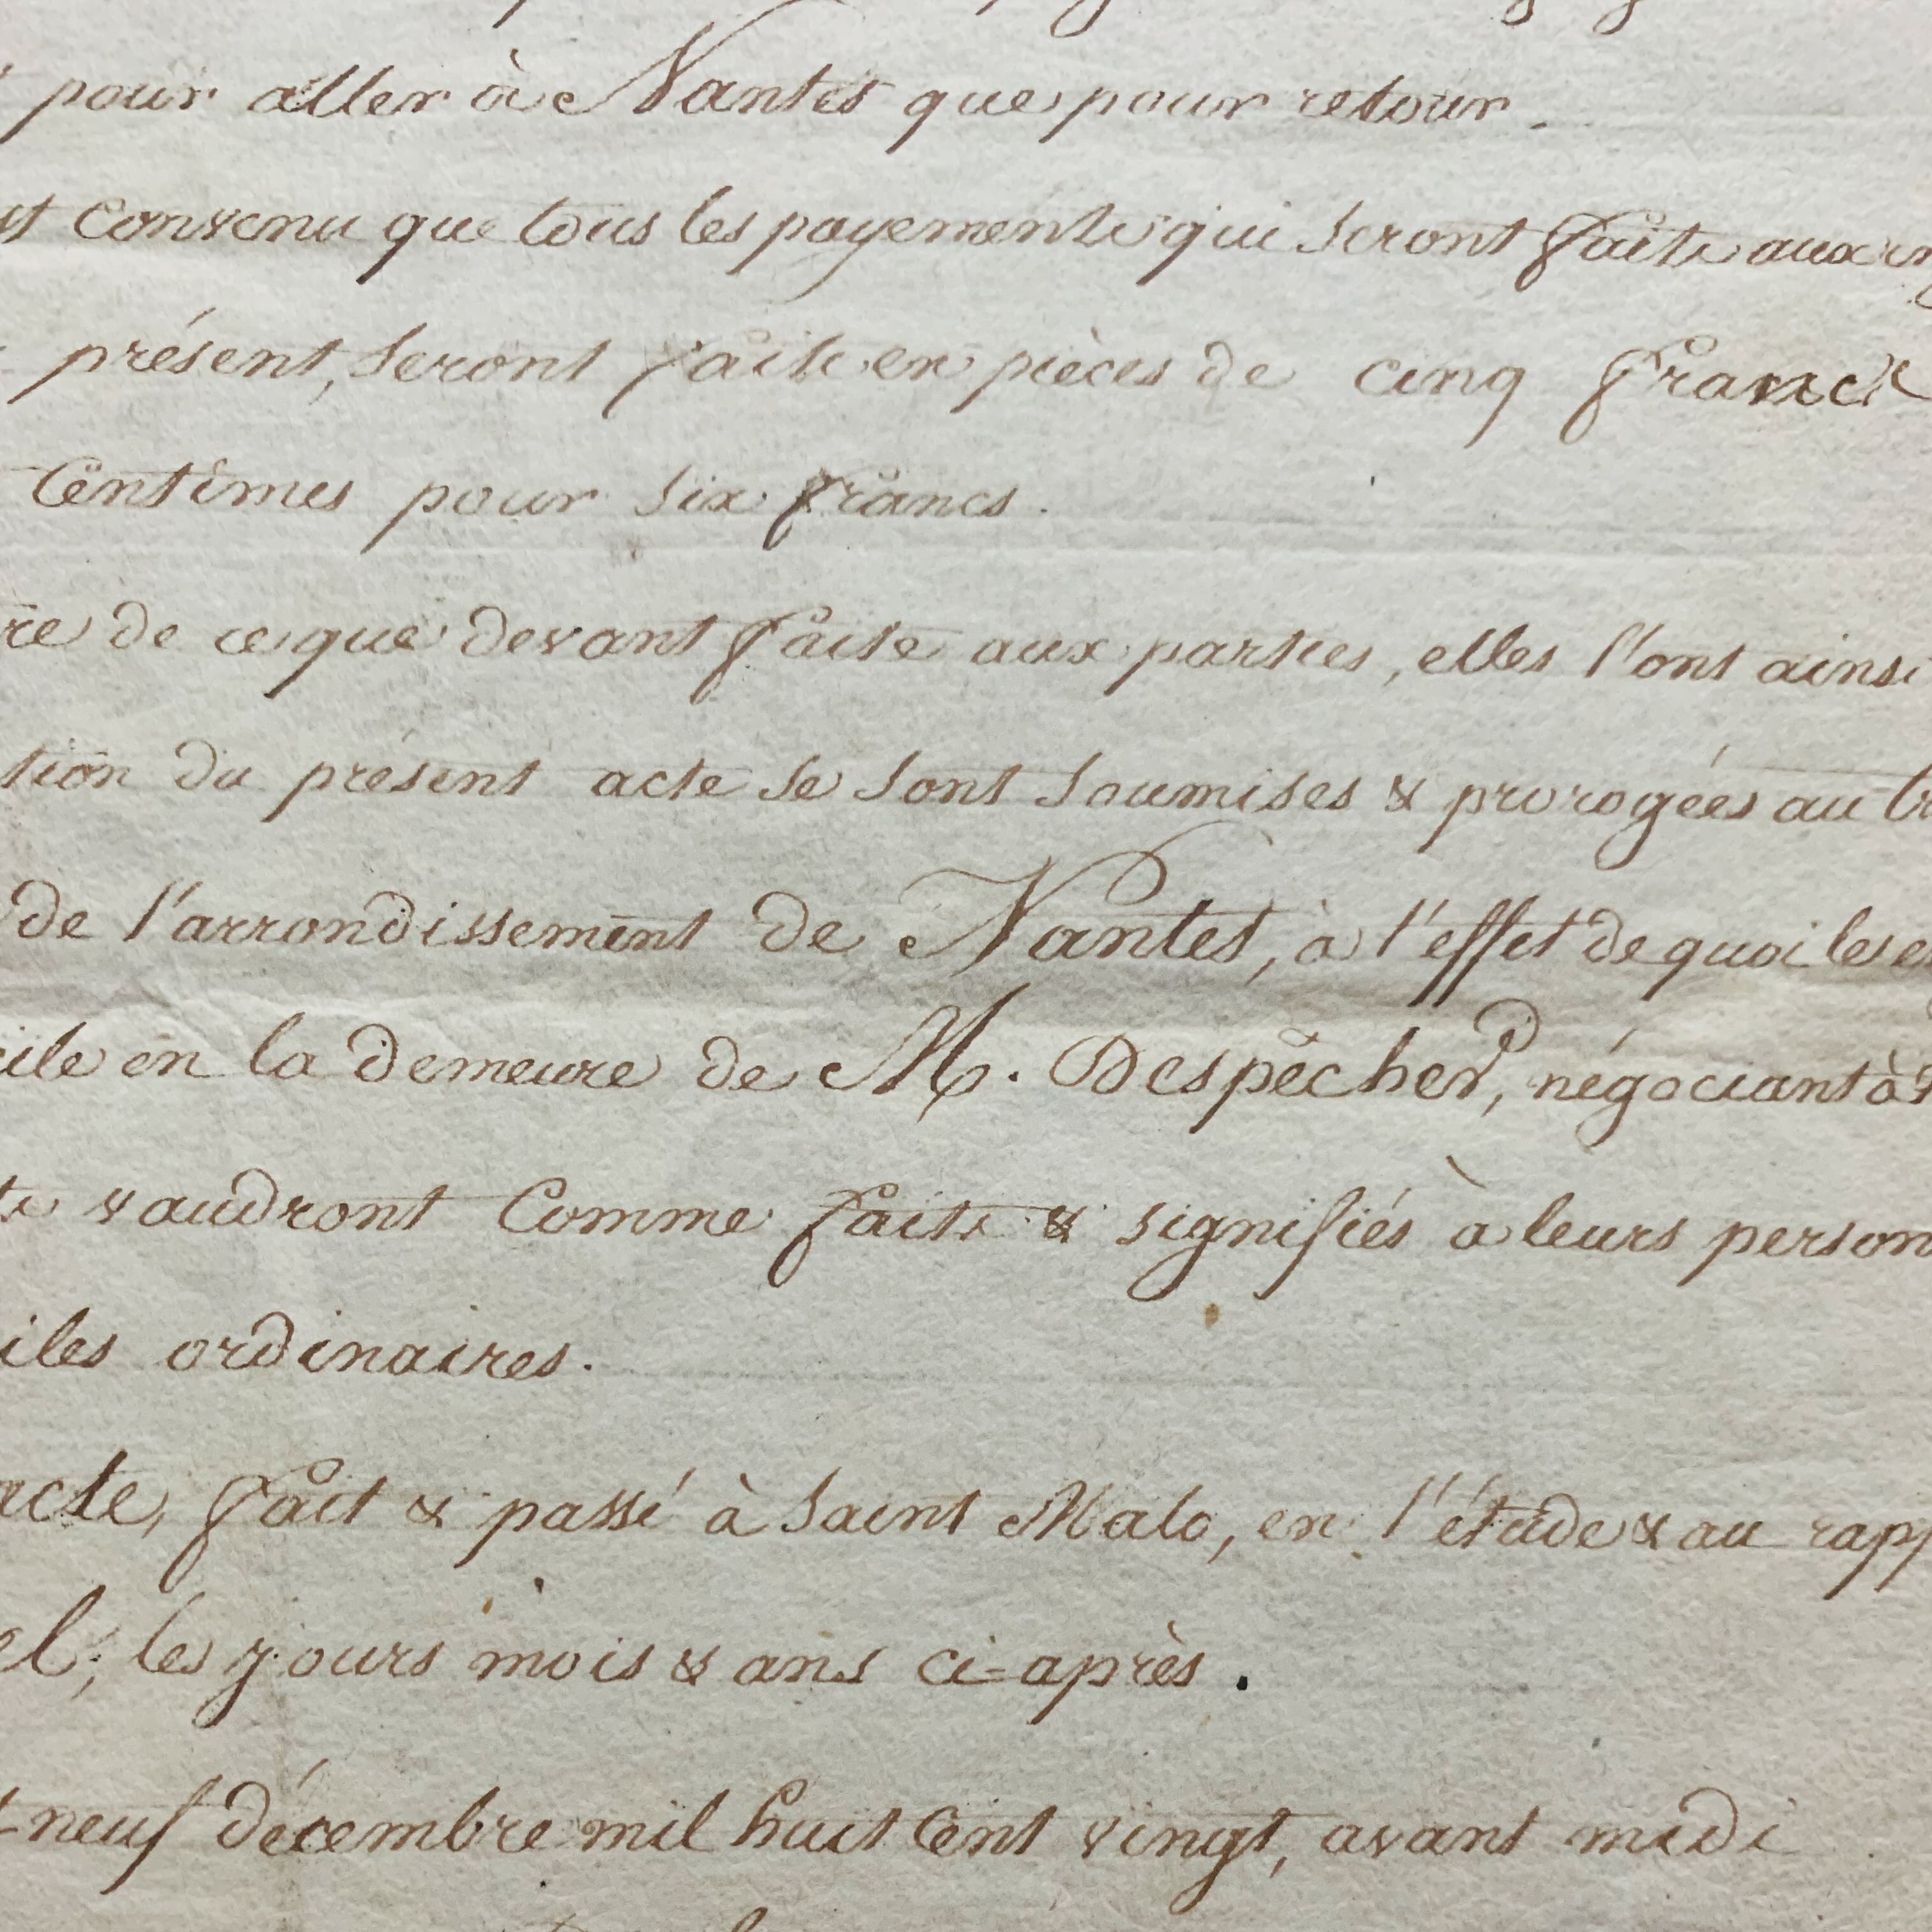 pour aller à Nantes que pour retour.
st convenu que tous les payements qui seront faits aux
présent, seront faits en pièces de cinq francs
Centimes pour six francs.
re de ce que devant faite aux parties, elles l'ont ainsi
tion du présent acte se sont soumises & prorogées au
de l'arrondissement de Nantes, à l'effet de quoi les
ile en la demeure de M. Despêcher, négociant à
vaudront comme faits & signifiés à leurs person
iles ordinaires.
acte, fait & passé à Saint Malo, en l'étude & au rapp
el, les jours mois & ans ci=après.
neuf décembre mil huit Cent vingt, avant midi